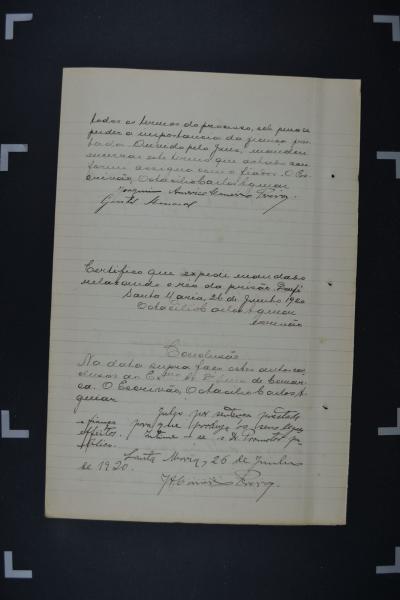 todos os termos do processo, sob pena de
perder a importancia da fiança pres-
tada. Ouvido pelo Juiz, mandou
encerrar este termo que achado con-
forme assigna com o fiador. O Es-
crivão, Octacilio Carlos Aguiar
Joaquim Americo Carneiro
Certifico que expedi mandado
relaxando o réo da prisão. Dou fé
Santa Maria, 26 de Junho 1920
Octacilio Carlos Aguiar
escrivão
Conclusão
Na data supra faço estes autos con-
clusos ao Exmo Sr. Dr. Juiz de Comar-
ca. O Escrivão, Octacilio Carlos A-
guiar
Julgo por sentença prestada
a fiança para que produza os seus legaes
effeitos. Intime-se o Dr. Promotor pu-
blico.
Santa Maria, 26 de Junho
de 1920.